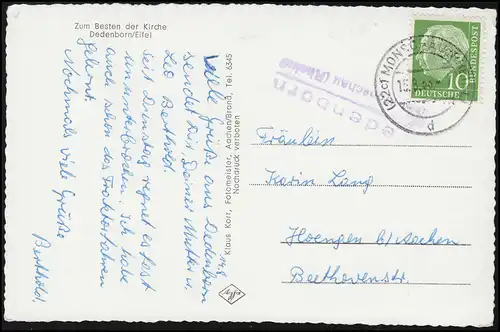 Zum Besten der Kirche
Dedenborn/Eifel
Viele Grüße aus Dedenborn
sendet Dir Deine Mutter u.
Leo Berthold.
Seit Dienstag regnet es fast
ununterbrochen. Ich habe
auch schon das Traktorfahren
gelernt.
Nochmals viele Grüße
Berthold
Klaus Korr, Fotomeister, Aachen/Brand, Tel. 6345
Nachdruck verboten
edenborn
schau (Rhein
(22c) MONSCHAU
d
DEUTSCHE
BUNDESPOST
10
Fräulein
Karin Lang
Hoengen b/ Aachen
Beethovenstr.